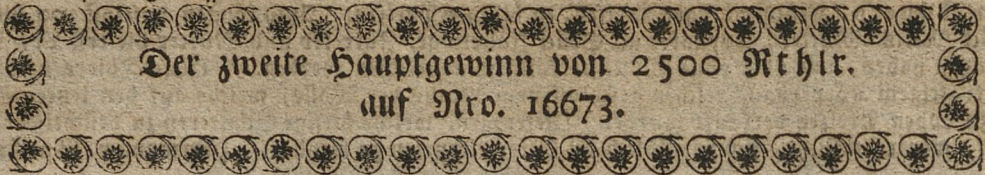 Der zweite Hauptgewinn von 2500 Rthlr.
auf Nro. 16673.